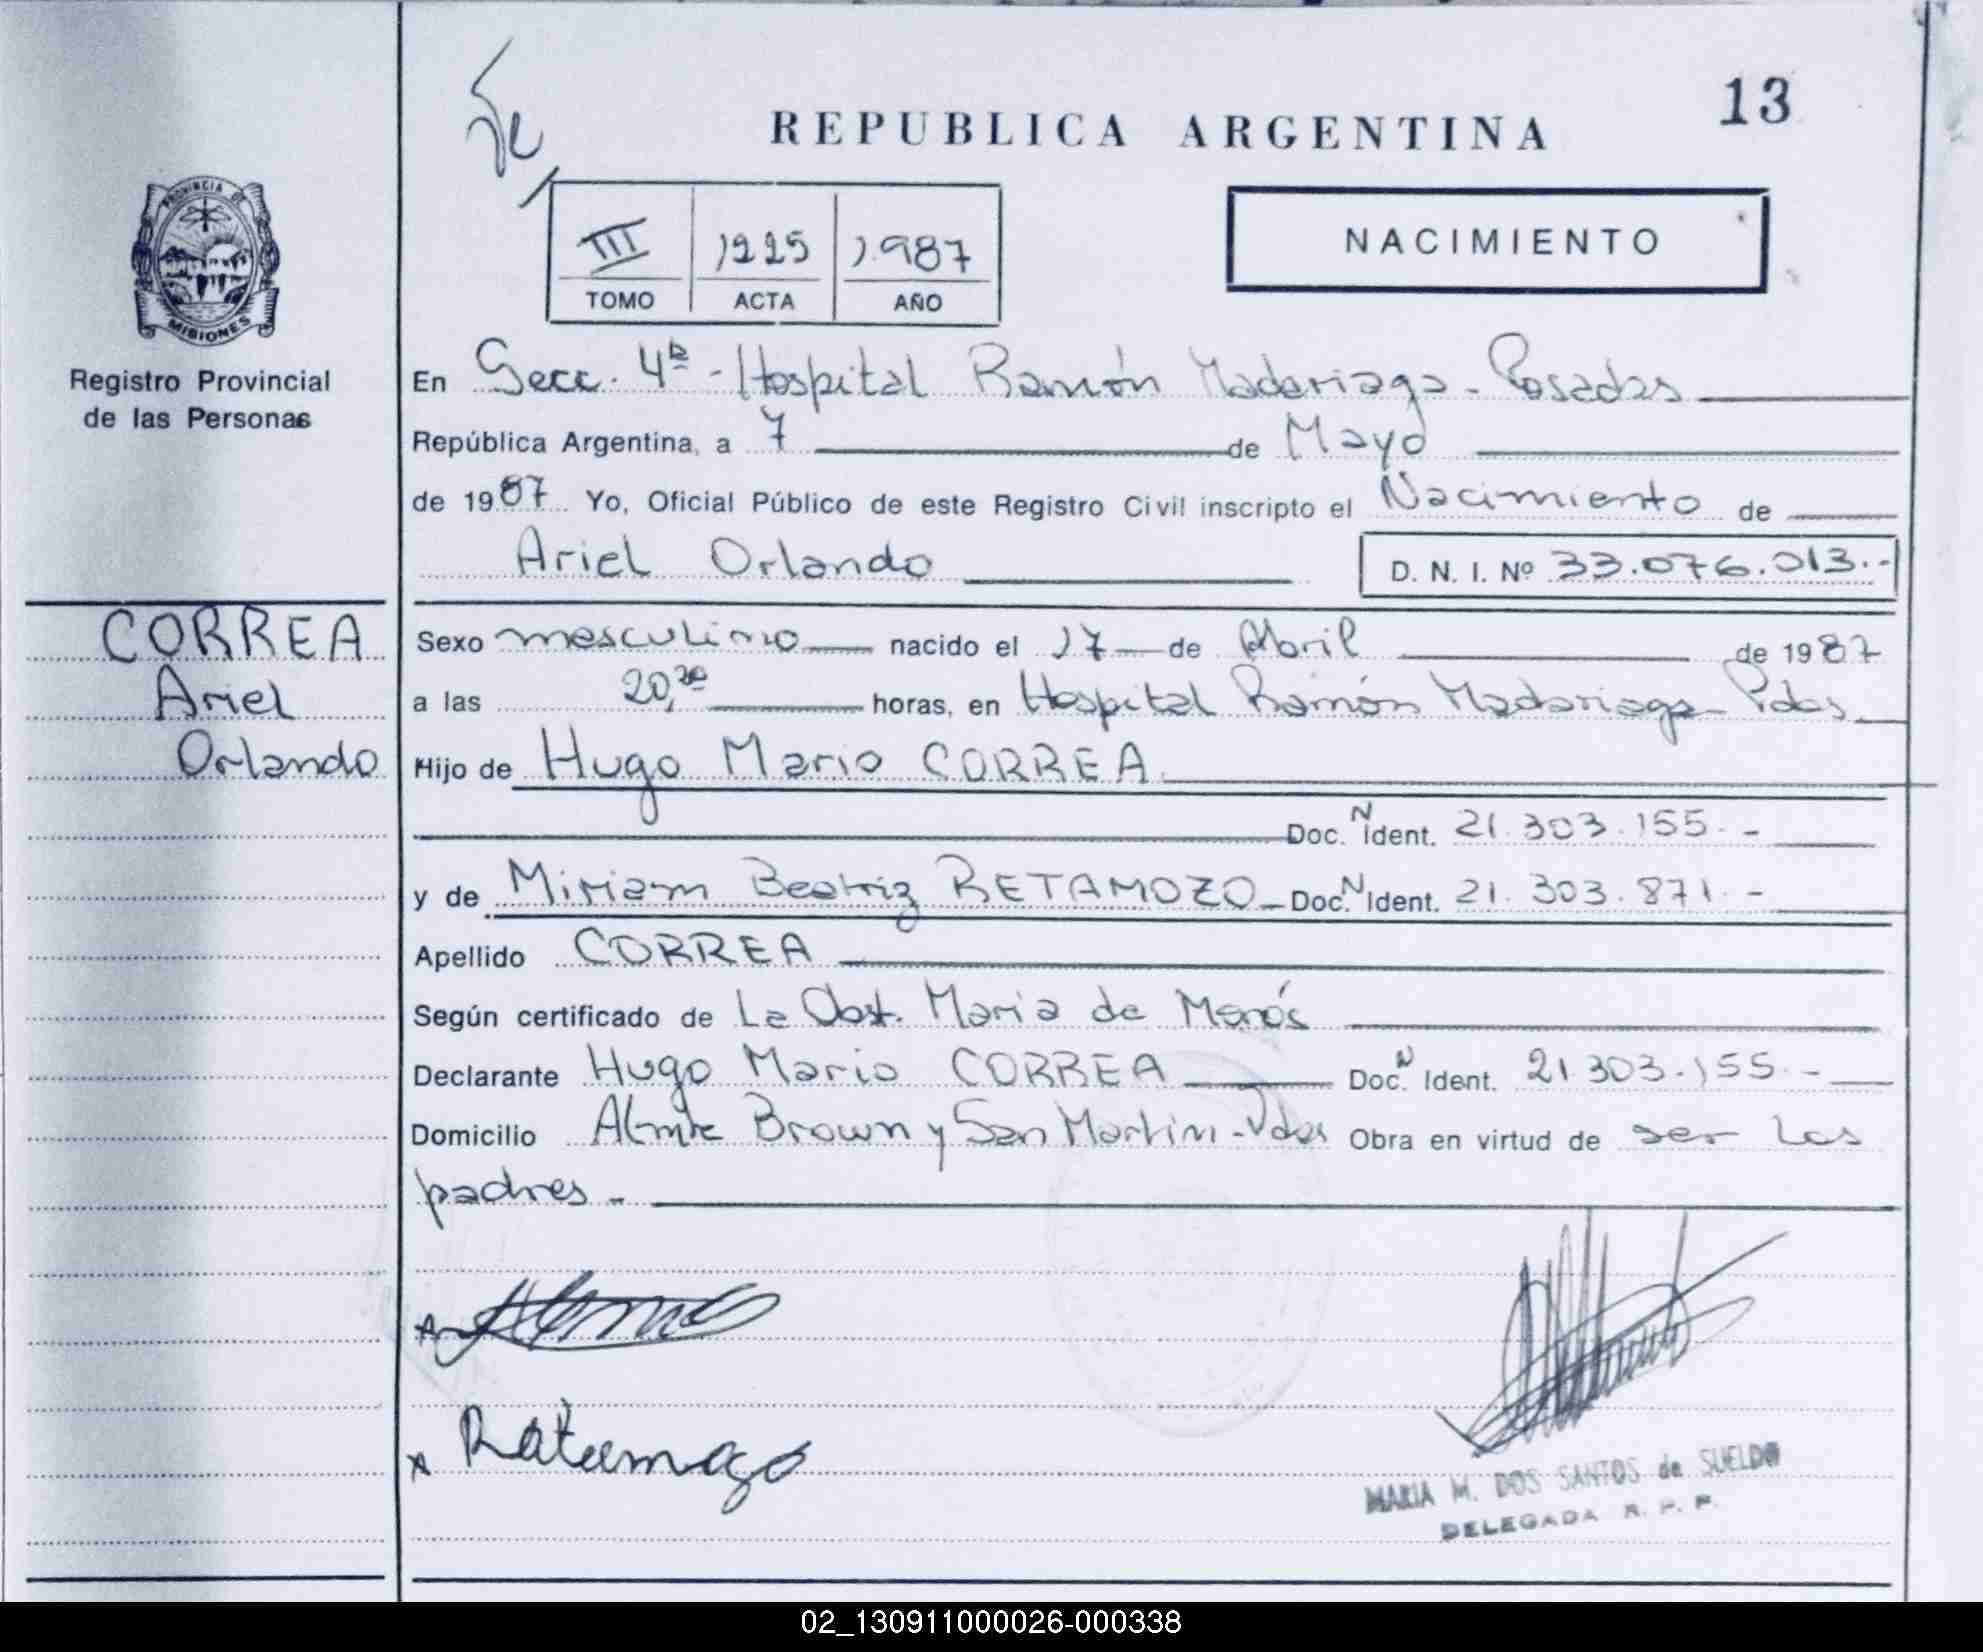 13
REPUBLICA ARGENTINA
PROVINCIA DE
MISIONES
III 1225 1987
TOMO ACTA AÑO
NACIMIENTO
Registro Provincial
de las Personas
En Secc. 4ª - Hospital Ramón Madariaga - Posadas
República Argentina, a 7 de Mayo
de 1987 Yo, Oficial Público de este Registro Civil inscripto el Nacimiento de
Ariel Orlando D. N. I. Nº 33.076.013.-
CORREA
Ariel
Orlando
Sexo masculino nacido el 17 de Abril de 1987
a las 20, horas, en Hospital Ramón Madariaga - Pdas
Hijo de Hugo Mario CORREA
Doc. N Ident. 21.303.155.-
y de Miriam Beatriz RETAMOZO - Doc. N Ident. 21.303.871.-
Apellido CORREA
Según certificado de La Obst. Maria de
Declarante Hugo Mario CORREA Doc. N Ident. 21.303.155.-
Domicilio Almte Brown y San Martin - Pdas Obra en virtud de ser los
padres.-
Retamozo
MARIA M. DOS SANTOS de SUELDO
DELEGADA R. P. P.
02_130911000026-000338